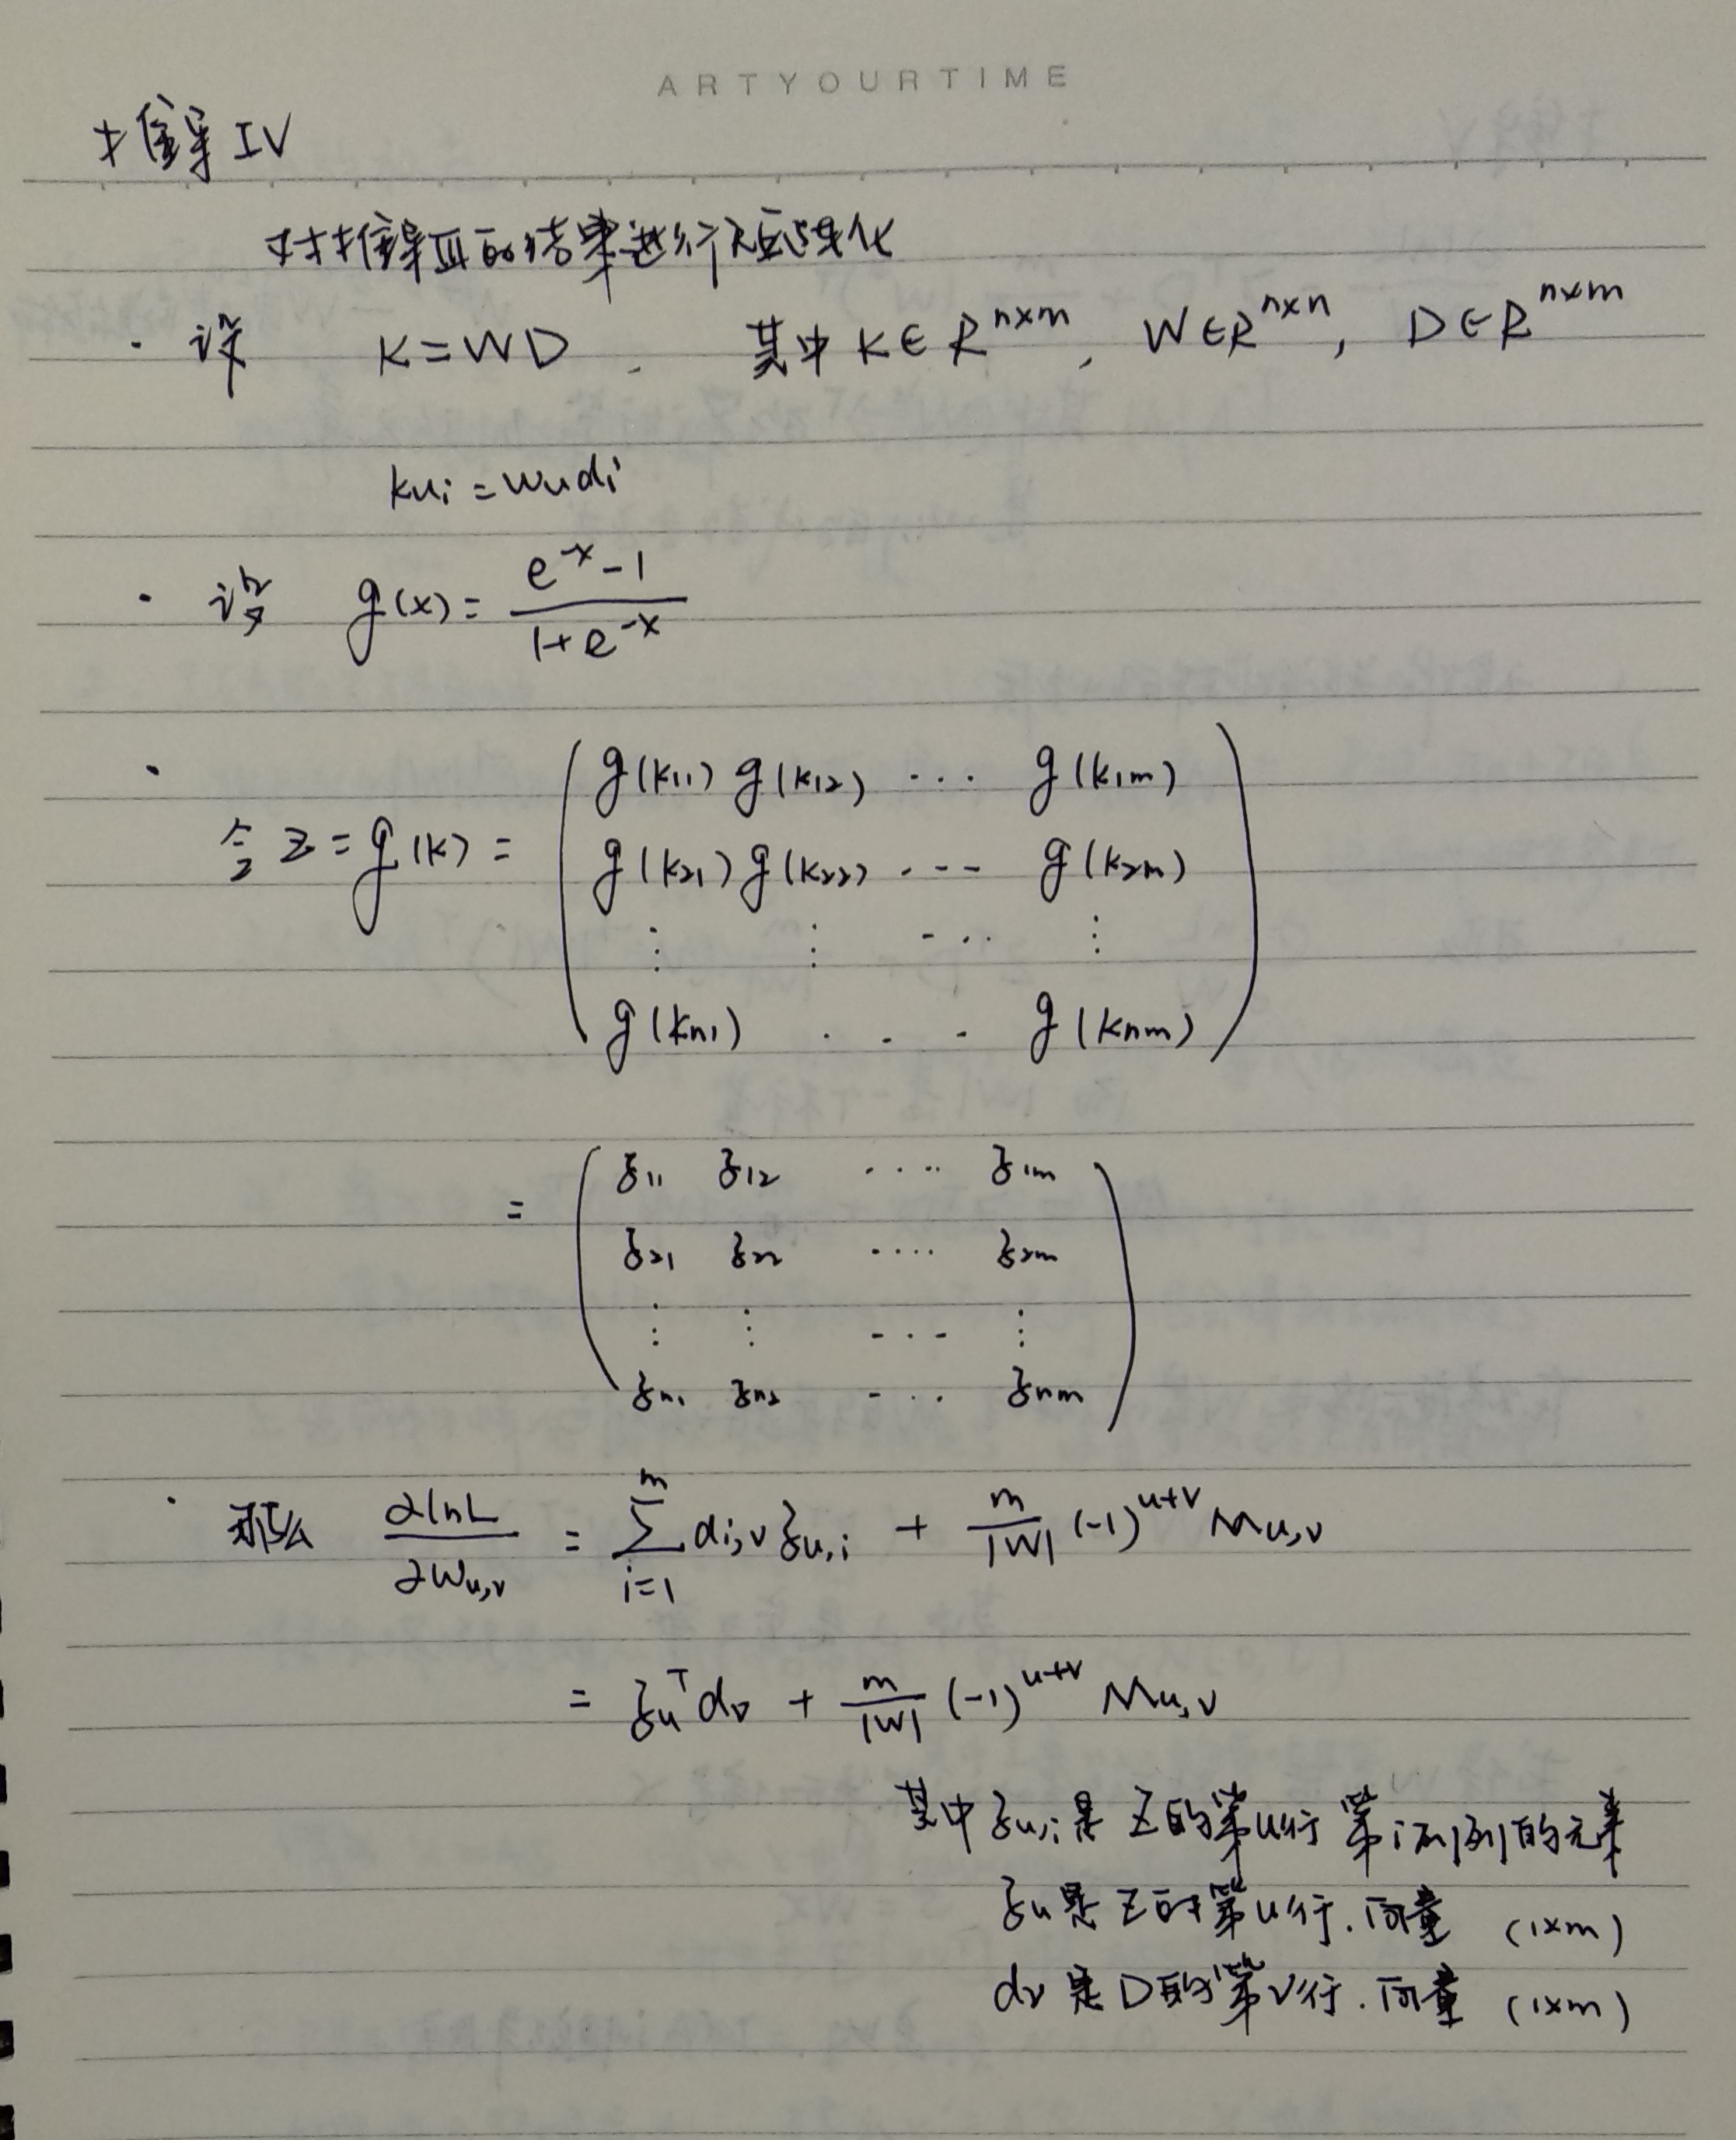 ARTYOURTIME
推导 IV
对推导 III 的结果进行矩阵化
· 设 K=WD . 其中 K∈R^{n×m}, W∈R^{n×n}, D∈R^{n×m}
k_{ui}=w_u d_i
· 设 g(x)= \frac{e^{-x}-1}{1+e^{-x}}
· 令 Z=g(K)= \begin{pmatrix} g(k_{11}) & g(k_{12}) & \cdots & g(k_{1m}) \\ g(k_{21}) & g(k_{22}) & \cdots & g(k_{2m}) \\ \vdots & \vdots & \cdots & \vdots \\ g(k_{n1}) & \cdot & \cdot \cdot & g(k_{nm}) \end{pmatrix}
= \begin{pmatrix} z_{11} & z_{12} & \cdots & z_{1m} \\ z_{21} & z_{22} & \cdots & z_{2m} \\ \vdots & \vdots & \cdots & \vdots \\ z_{n1} & z_{n2} & \cdots & z_{nm} \end{pmatrix}
· 那么 \frac{∂lnL}{∂w_{u,v}} = \sum_{i=1}^{m} d_{i,v} z_{u,i} + \frac{m}{|W|} (-1)^{u+v} M_{u,v}
= z_u^T d_v + \frac{m}{|W|} (-1)^{u+v} M_{u,v}
其中 z_{u,i} 是 Z 的第u行 第i列的元素
z_u 是 Z 的第u行.向量 (1×m)
d_v 是 D 的第v行.向量 (1×m)